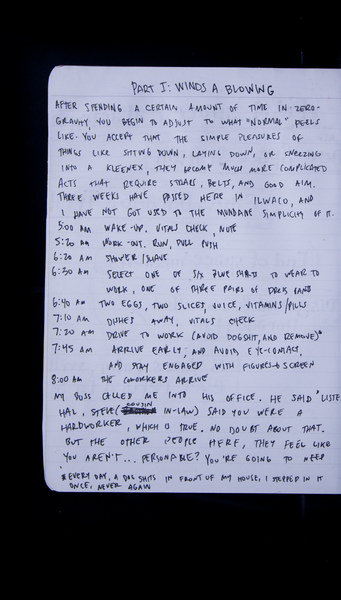 PART I: WINDS A BLOWING
AFTER SPENDING A CERTAIN AMOUNT OF TIME IN ZERO-
GRAVITY, YOU BEGIN TO ADJUST TO WHAT "NORMAL" FEELS
LIKE. YOU ACCEPT THAT THE SIMPLE PLEASURES OF
THINGS LIKE SITTING DOWN, LAYING DOWN, OR SNEEZING
INTO A KLEENEX, THEY BECOME MUCH MORE COMPLICATED
ACTS THAT REQUIRE STRAPS, BELTS, AND GOOD AIM.
THREE WEEKS HAVE PASSED HERE IN ILWACO, AND
I HAVE NOT GOT USED TO THE MUNDANE SIMPLICITY OF IT.
5:00 AM WAKE-UP. VITALS CHECK, NOTE
5:20 AM WORK-OUT. RUN, PULL PUSH
6:20 AM SHOWER/SHAVE
6:30 AM SELECT ONE OF SIX BLUE SHIRTS TO WEAR TO
WORK, ONE OF THREE PAIRS OF DRESS PANTS
6:40 AM TWO EGGS, TWO SLICES, JUICE, VITAMINS/PILLS
7:10 AM DISHES AWAY, VITALS CHECK
7:20 AM DRIVE TO WORK (AVOID DOGSHIT, AND REMOVE)*
7:45 AM ARRIVE EARLY, AND AVOID EYE-CONTACT,
AND STAY ENGAGED WITH FIGURES + SCREEN
8:00 AM THE COWORKERS ARRIVE
MY BOSS CALLED ME INTO HIS OFFICE. HE SAID "LISTE
HAL, STEVE (COUSIN IN-LAW) SAID YOU WERE A
HARDWORKER, WHICH IS TRUE. NO DOUBT ABOUT THAT.
BUT THE OTHER PEOPLE HERE, THEY FEEL LIKE
YOU AREN'T... PERSONABLE? YOU'RE GOING TO NEED
*EVERY DAY, A DOG SHITS IN FRONT OF MY HOUSE, I STEPPED IN IT
ONCE, NEVER AGAIN